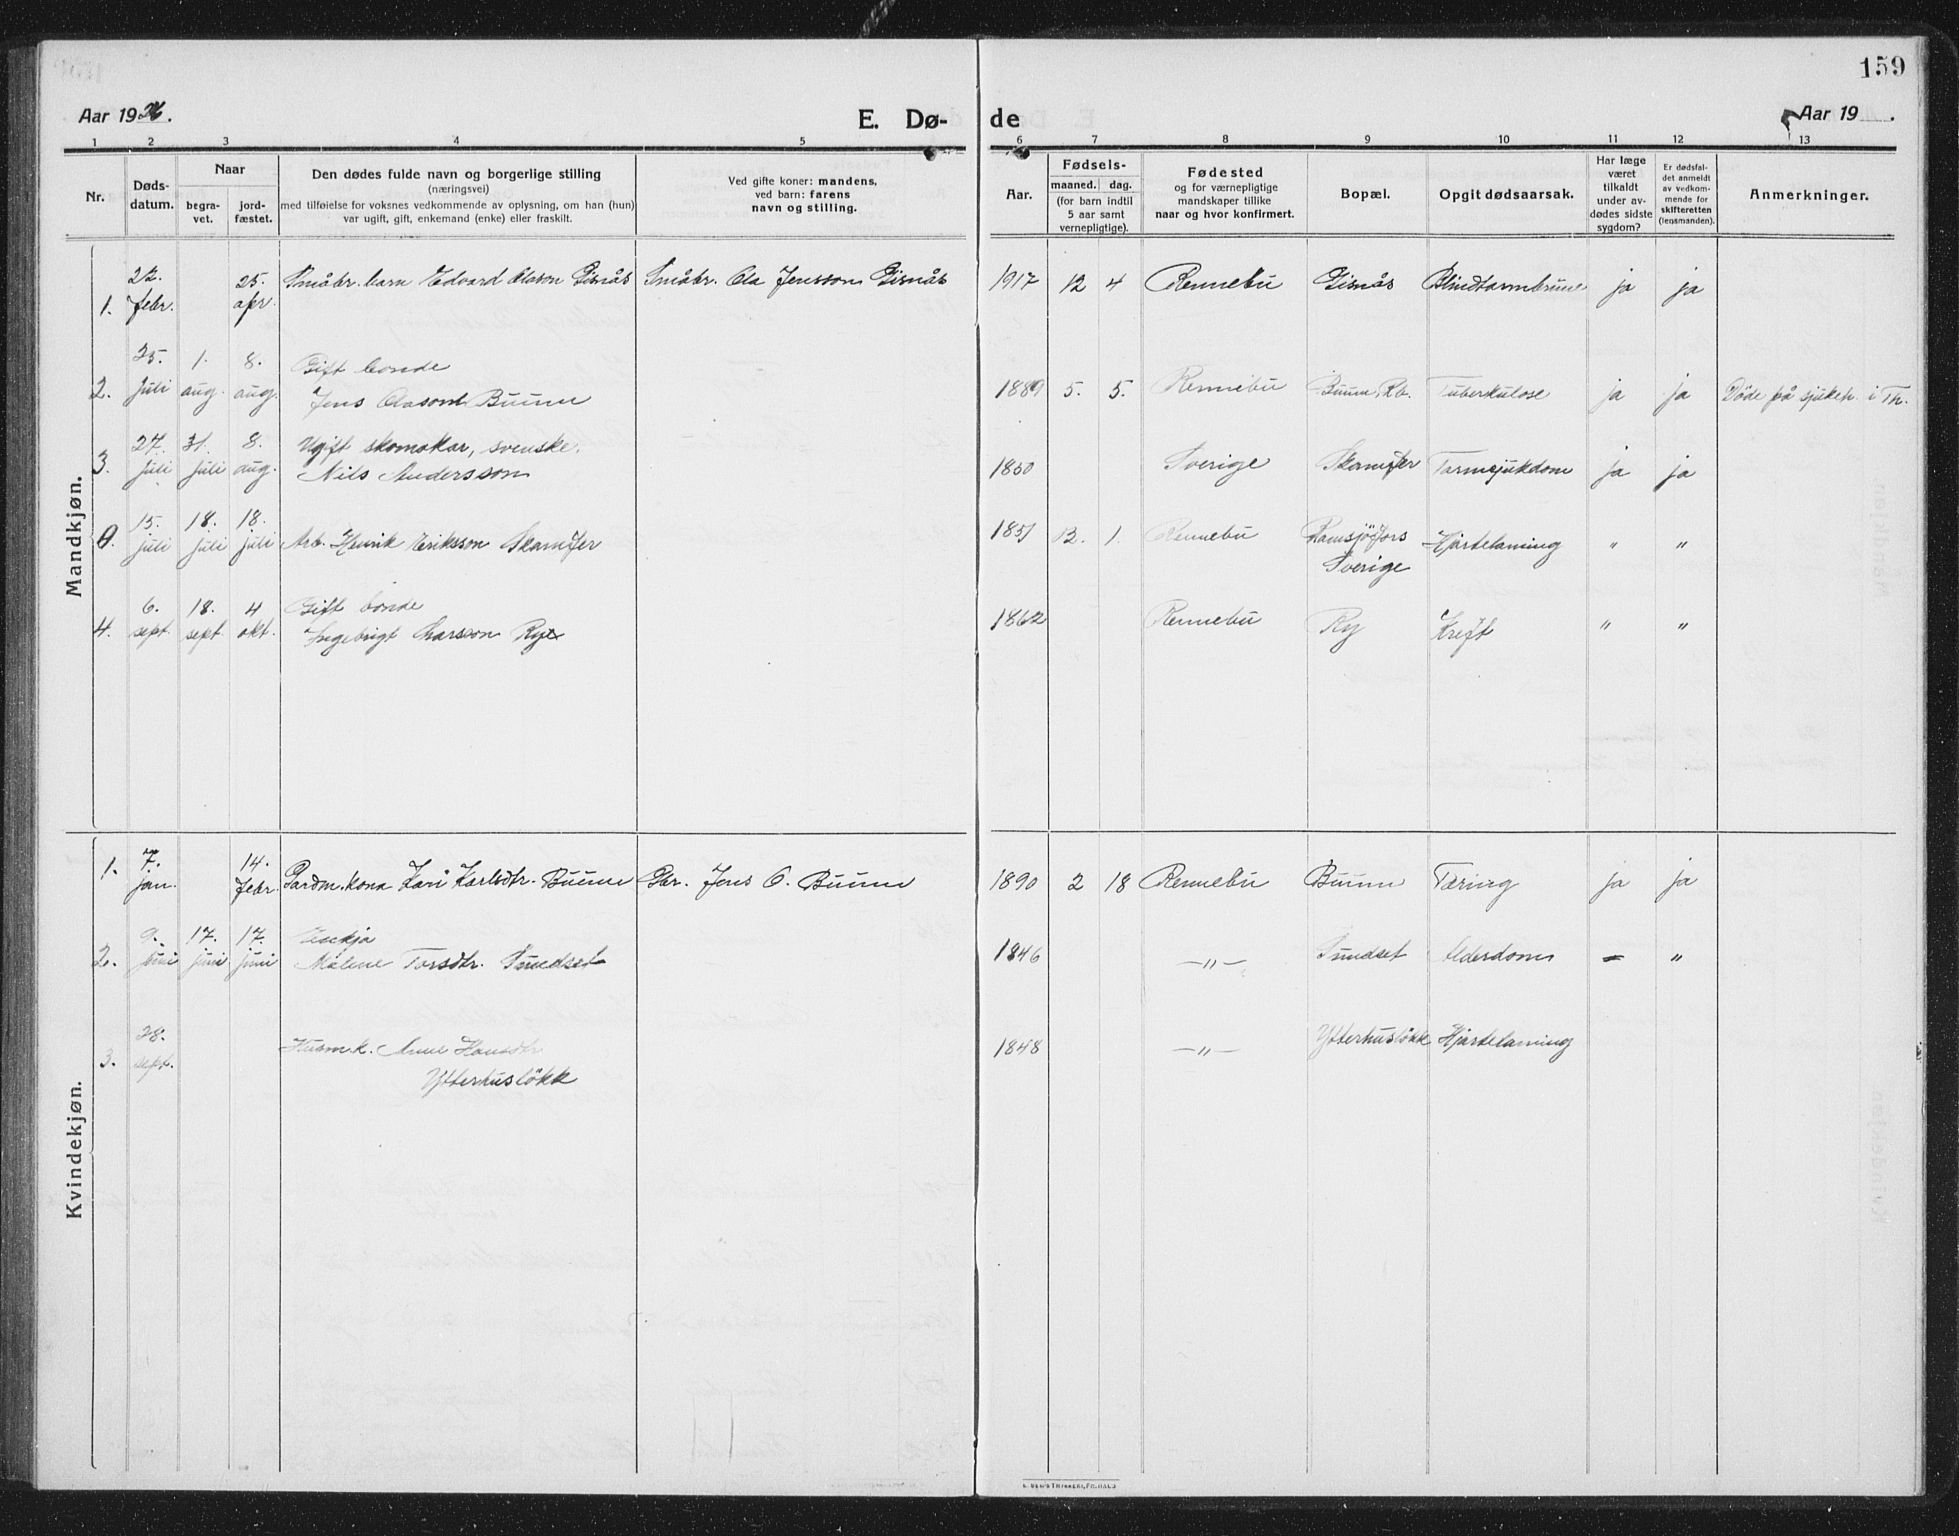 159
Aar 1926.
E. Dø-
de
Aar 19 .
1 2 3 4 5 6 7 8 9 10 11 12 13
Nr.
Døds-
datum.
Naar
begra-
vet.
jord-
fæstet.
Den dødes fulde navn og borgerlige stilling
(næringsvei)
med tilføielse for voksnes vedkommende av oplysning, om han (hun)
var ugift, gift, enkemand (enke) eller fraskilt.
Ved gifte koner: mandens,
ved barn: farens
navn og stilling.
Aar.
Fødsels-
maaned. dag.
(for barn indtil
5 aar samt
vernepligtige).
Fødested
og for værnepligtige
mandskaper tillike
naar og hvor konfirmert.
Bopæl.
Opgit dødsaarsak.
Har læge
været
tilkaldt
under av-
dødes sidste
sygdom?
Er dødsfal-
det anmeldt
av vedkom-
mende for
skifteretten
(lensmanden).
Anmerkninger.
Mandkjøn.
1. 22. febr. 25. apr. Småbr. barn Edvard Olason Gisnås Småbr. Ola Jensson Gisnås 1917 12 4 Rennebu Gisnås Blindtarmbrune ja ja
2. 25. juli 1. aug. 8. aug. Gift bonde
Jens Olasson Buum 1889 5. 5. Rennebu Buum, Rb. Tuberkulose ja ja Döde på sjukeh. i Th.
3. 27. juli 31. juli 8. aug. Ugift skomakar, svenske.
Nils Andersson 1850 Sverige Skamfer Tarmsjukdom ja ja
0. 15. juli 18. juli 18. juli Arb. Henrik Eriksson Skamfer 1851 1. Rennebu Ramsjöfors
Sverige Hjartelaming " "
4. 6. sept. 18. sept. 4 okt. Gift bonde
Ingebrigt Larsson Rye 1862 Rennebu Ry Kreft " "
Kvindekjøn.
1. 7. jan. 14. febr. Gardm. kona Kari Karlsdtr. Buum Gbr. Jens O. Buum 1890 2 18 Rennebu Buum Tæring ja ja
2. 9. juni 17. juni 17. juni Enkja
Malene Torsdtr. Sundset 1846 —"— Sundset Alderdom — "
3. 28. sept. Husm.k. Anne Hansdtr
Ytterhuslökk 1848 —"— Ytterhuslökk Hjartelaming